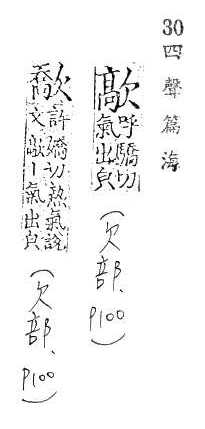 30 四聲篇海
歊 呼驕切
氣出皃 (欠部、P100)
許嬌切熱氣說
文歊丨氣出皃 (欠部、P100)